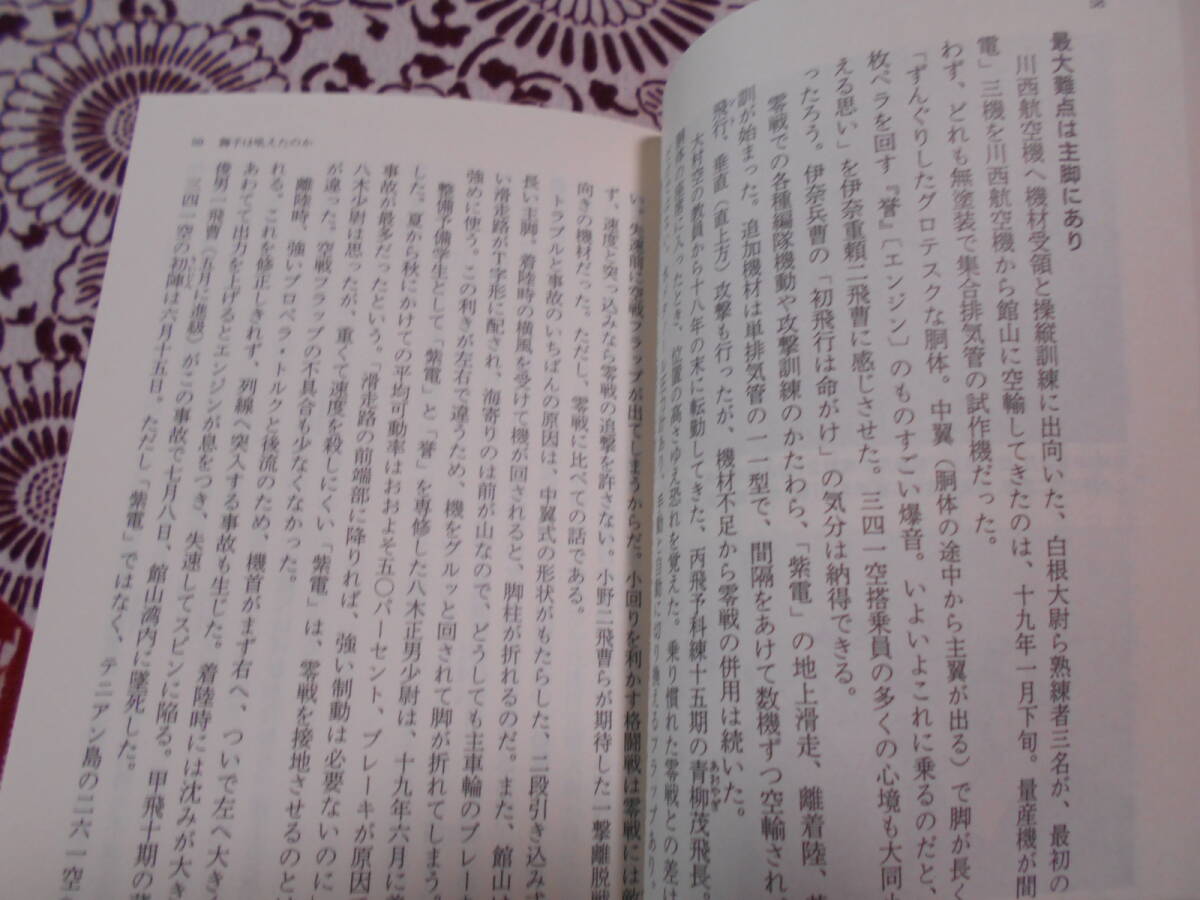 最大難点は主脚にあり
川西航空機へ機材受領と操縦訓練に出向いた、白根大尉ら熟練者三名が、最初の
電」三機を川西航空機から館山に空輸してきたのは、十九年一月下旬。量産機が間
わず、どれも無塗装で集合排気管の試作機だった。
「ずんぐりしたグロテスクな胴体。中翼（胴体の途中から主翼が出る）で脚が長く
枚ペラを回す『誉』〔エンジン〕のものすごい爆音。いよいよこれに乗るのだと、
える思い」を伊奈重頼二飛曹に感じさせた。三四一空搭乗員の多くの心境も大同小
ったろう。伊奈兵曹の「初飛行は命がけ」の気分は納得できる。
零戦での各種編隊機動や攻撃訓練のかたわら、「紫電」の地上滑走、離着陸、
訓が始まった。追加機材は単排気管の一一型で、間隔をあけて数機ずつ空輸され
飛行、垂直（直上方）攻撃も行ったが、機材不足から零戦の併用は続いた。
大村空の教員から十八年の末に転勤してきた、丙飛予科練十五期の青柳茂飛長。
あおやぎ
位置の高さゆえ恐れを覚えた。乗り慣れた零戦との差は
99 獅子は吼えたのか
い。失速前に空戦フラップが出てしまうからだ。小回りを利かす格闘戦は零戦には
ず、速度と突っ込みなら零戦の追撃を許さない。小野二飛曹らが期待した一撃離脱戦
向きの機材だった。ただし、零戦に比べての話である。
トラブルと事故のいちばんの原因は、中翼式の形状がもたらした、二段引き込み式
長い主脚。着陸時の横風を受けて機が回されると、脚柱が折れるのだ。また、館山は
い滑走路がT字形に配され、海寄りのは前が山なので、どうしても主車輪のブレー
強めに使う。この利きが左右で違うため、機をグルッと回されて脚が折れてしまう。
整備予備学生として「紫電」と「誉」を専修した八木正男少尉は、十九年六月に
した。夏から秋にかけての平均可動率はおおよそ五〇パーセント、ブレーキが原因で
事故が最多だったという。「滑走路の前端部に降りれば、強い制動は必要ないのに」
八木少尉は思ったが、重くて速度を殺しにくい「紫電」は、零戦を接地させるのとは
が違った。空戦フラップの不具合も少なくなかった。
離陸時、強いプロペラ・トルクと後流のため、機首がまず右へ、ついで左へ大き
れる。これを修正しきれず、列線へ突入する事故も生じた。着陸時には沈みが大き
あわてて出力を上げるとエンジンが息をつき、失速してスピンに陥る。甲飛十期の
俊男一飛曹（五月に進級）がこの事故で七月八日、館山湾内に墜死した。
三四一空の初陣は六月十五日。ただし「紫電」ではなく、テニアン島の二六一空